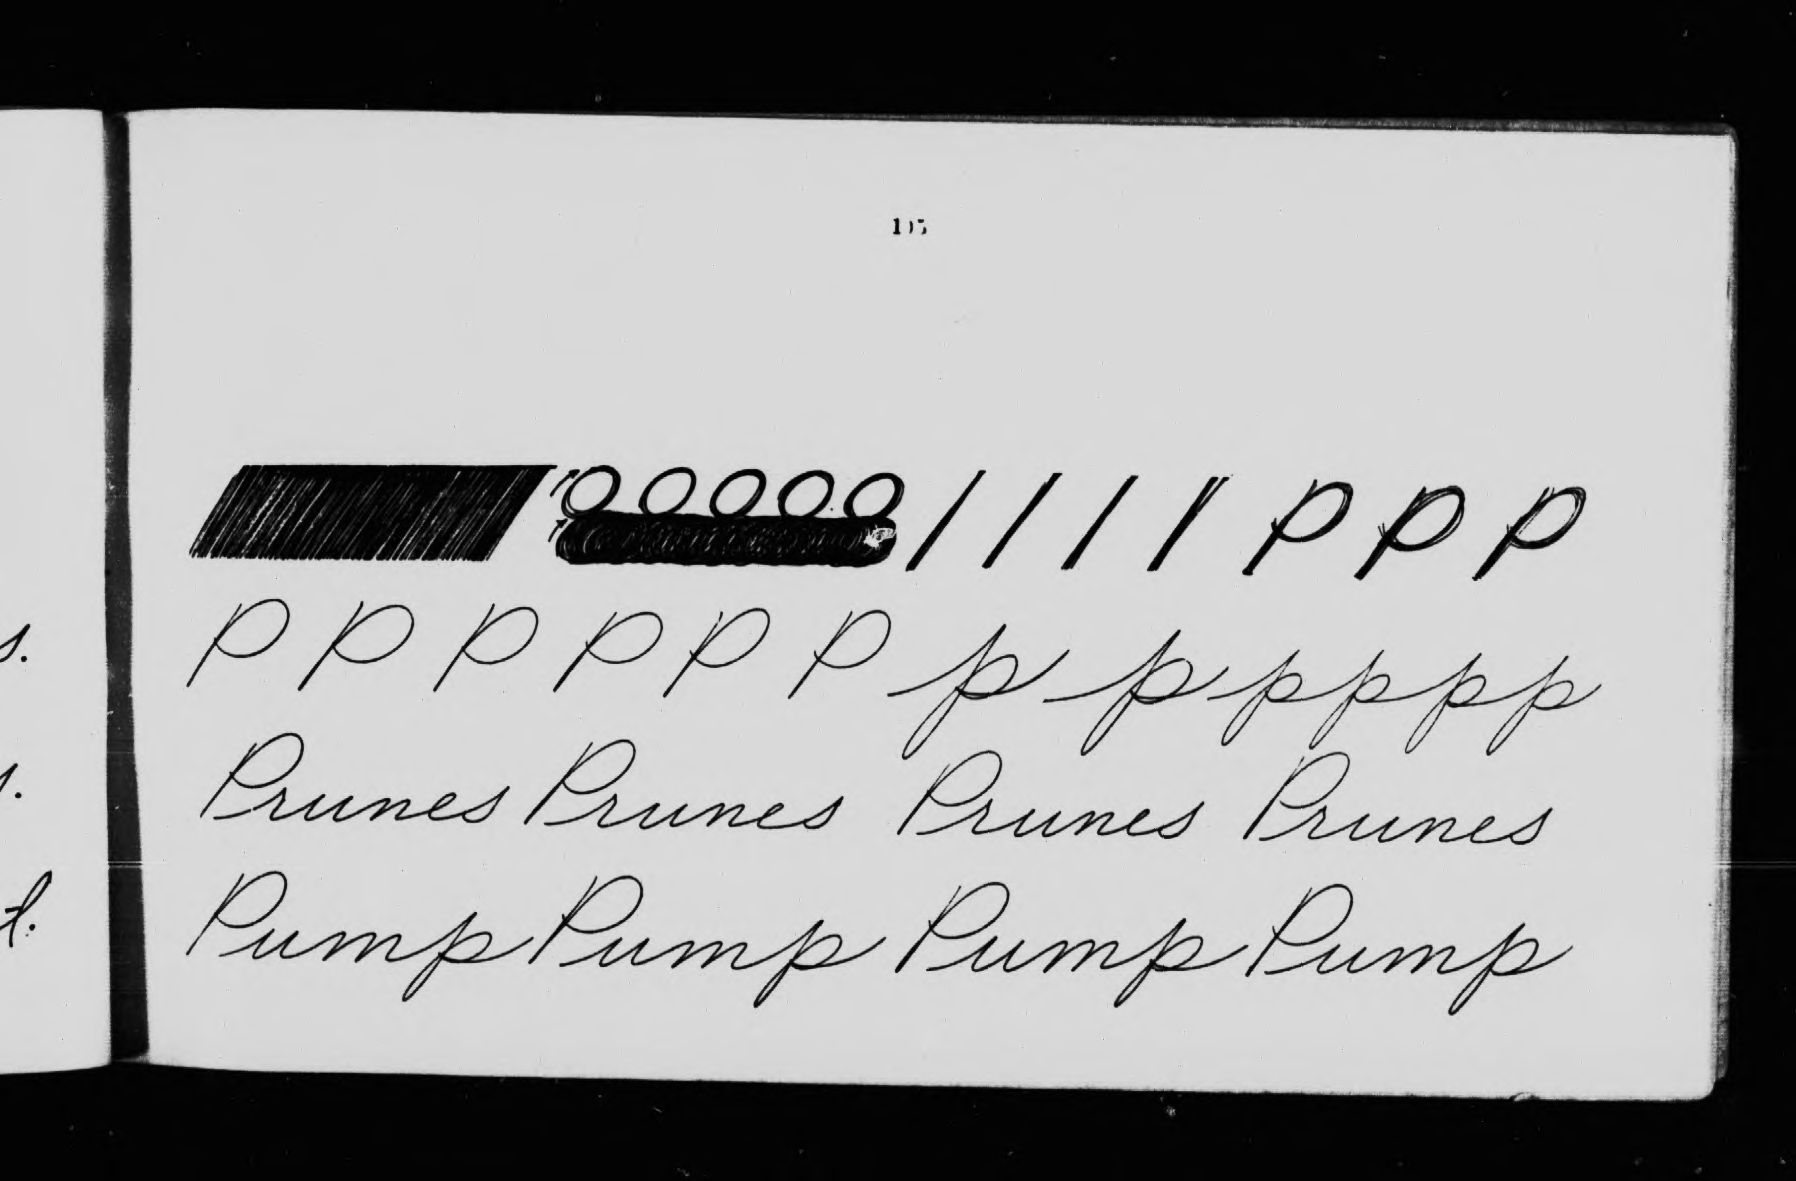 P P P
P P P P P P p p p p p p
Prunes Prunes Prunes Prunes
Pump Pump Pump Pump